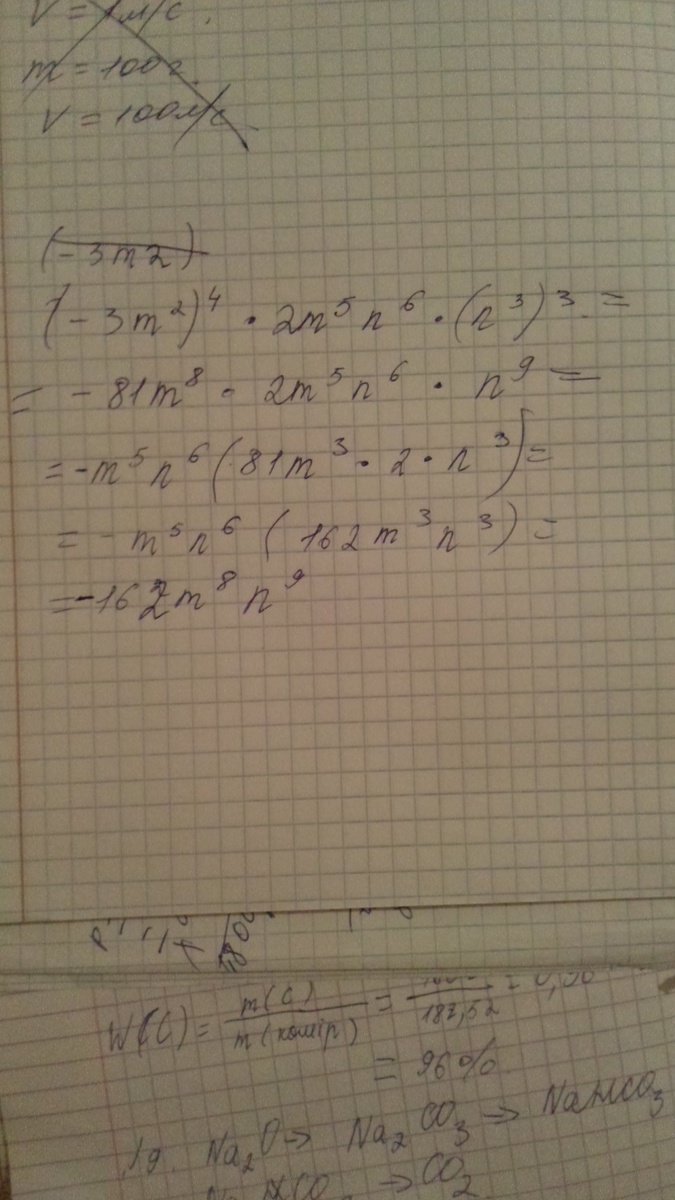 V = 1 м/с.
m = 100 г.
V = 100 м/с
(-3m2)
(-3m²)⁴ · 2m⁵n⁶ · (n³)³ =
= -81m⁸ · 2m⁵n⁶ · n⁹ =
= -m⁵n⁶(81m³ · 2 · n³) =
= -m⁵n⁶ (162m³n³) =
= -162m⁸n⁹
W(C) = m(C) / m(колір) = / 187,52 = 0,96
= 96%
19. Na₂O → Na₂CO₃ → NaHCO₃
→ CO₂